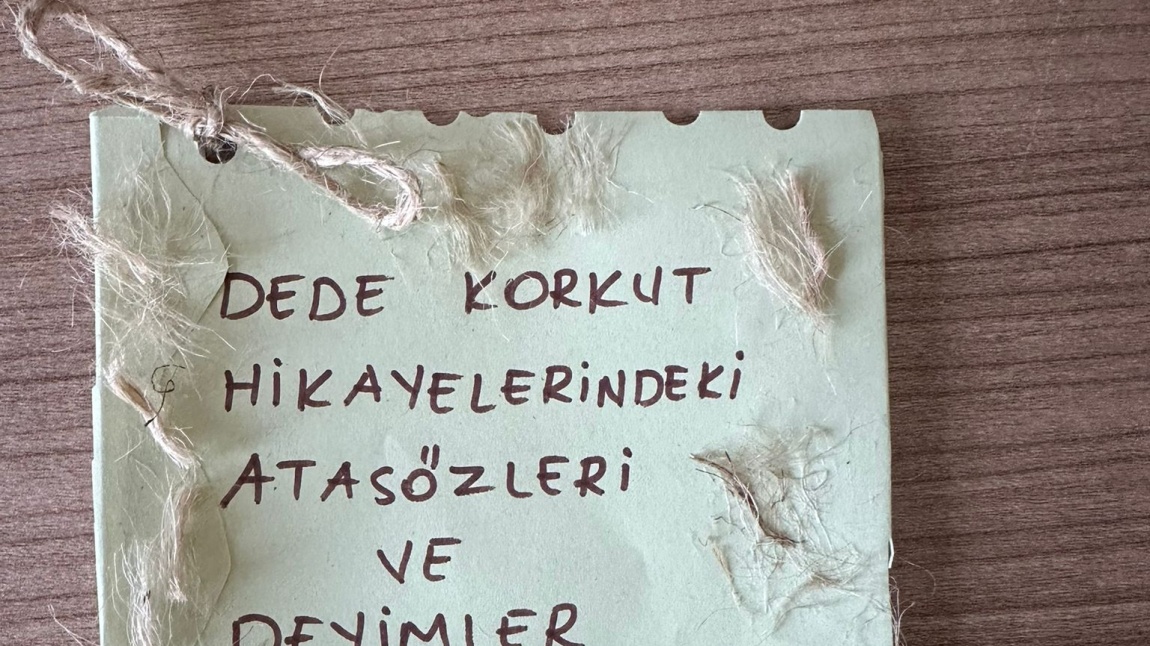 DEDE KORKUT
HİKAYELERİNDEKİ
ATASÖZLERİ
VE
DEYİMLER